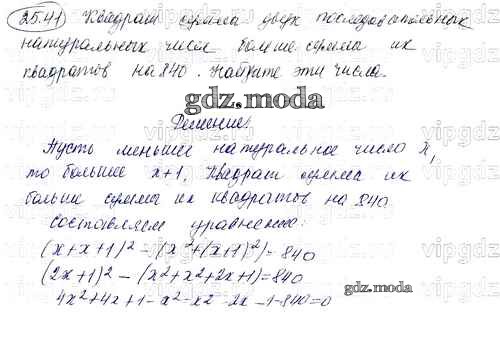 25.41 Квадрат суммы двух последовательных
натуральных чисел больше суммы их
квадратов на 840. Найдите эти числа.
gdz.moda
Решение:
Пусть меньшее натуральное число x,
то большее x+1. Квадрат суммы их
больше суммы их квадратов на 840.
составляем уравнение:
(x+x+1)² - (x²+(x+1)²)=840
(2x+1)² - (x²+x²+2x+1)=840
gdz.moda
4x²+4x+1-x²-x²-2x-1-840=0